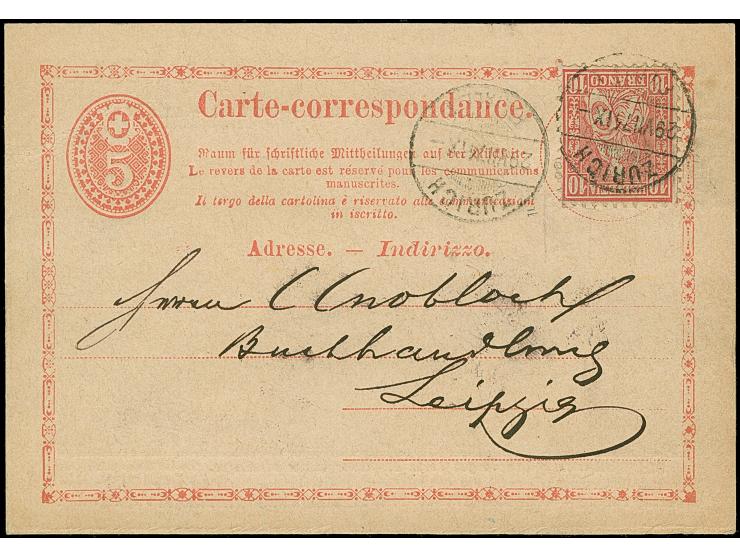 5
Carte-correspondance.
Raum für schriftliche Mittheilungen auf der Rückseite.
Le revers de la carte est réservé pour les communications
manuscrites.
Il tergo della cartolina è riservato alle communicazioni
in iscritto.
Adresse. — Indirizzo.
Herrn Knobloch
Buchhandlung
Leipzig
10 FRANCO 10
10 10
ZÜRICH
ZÜRICH